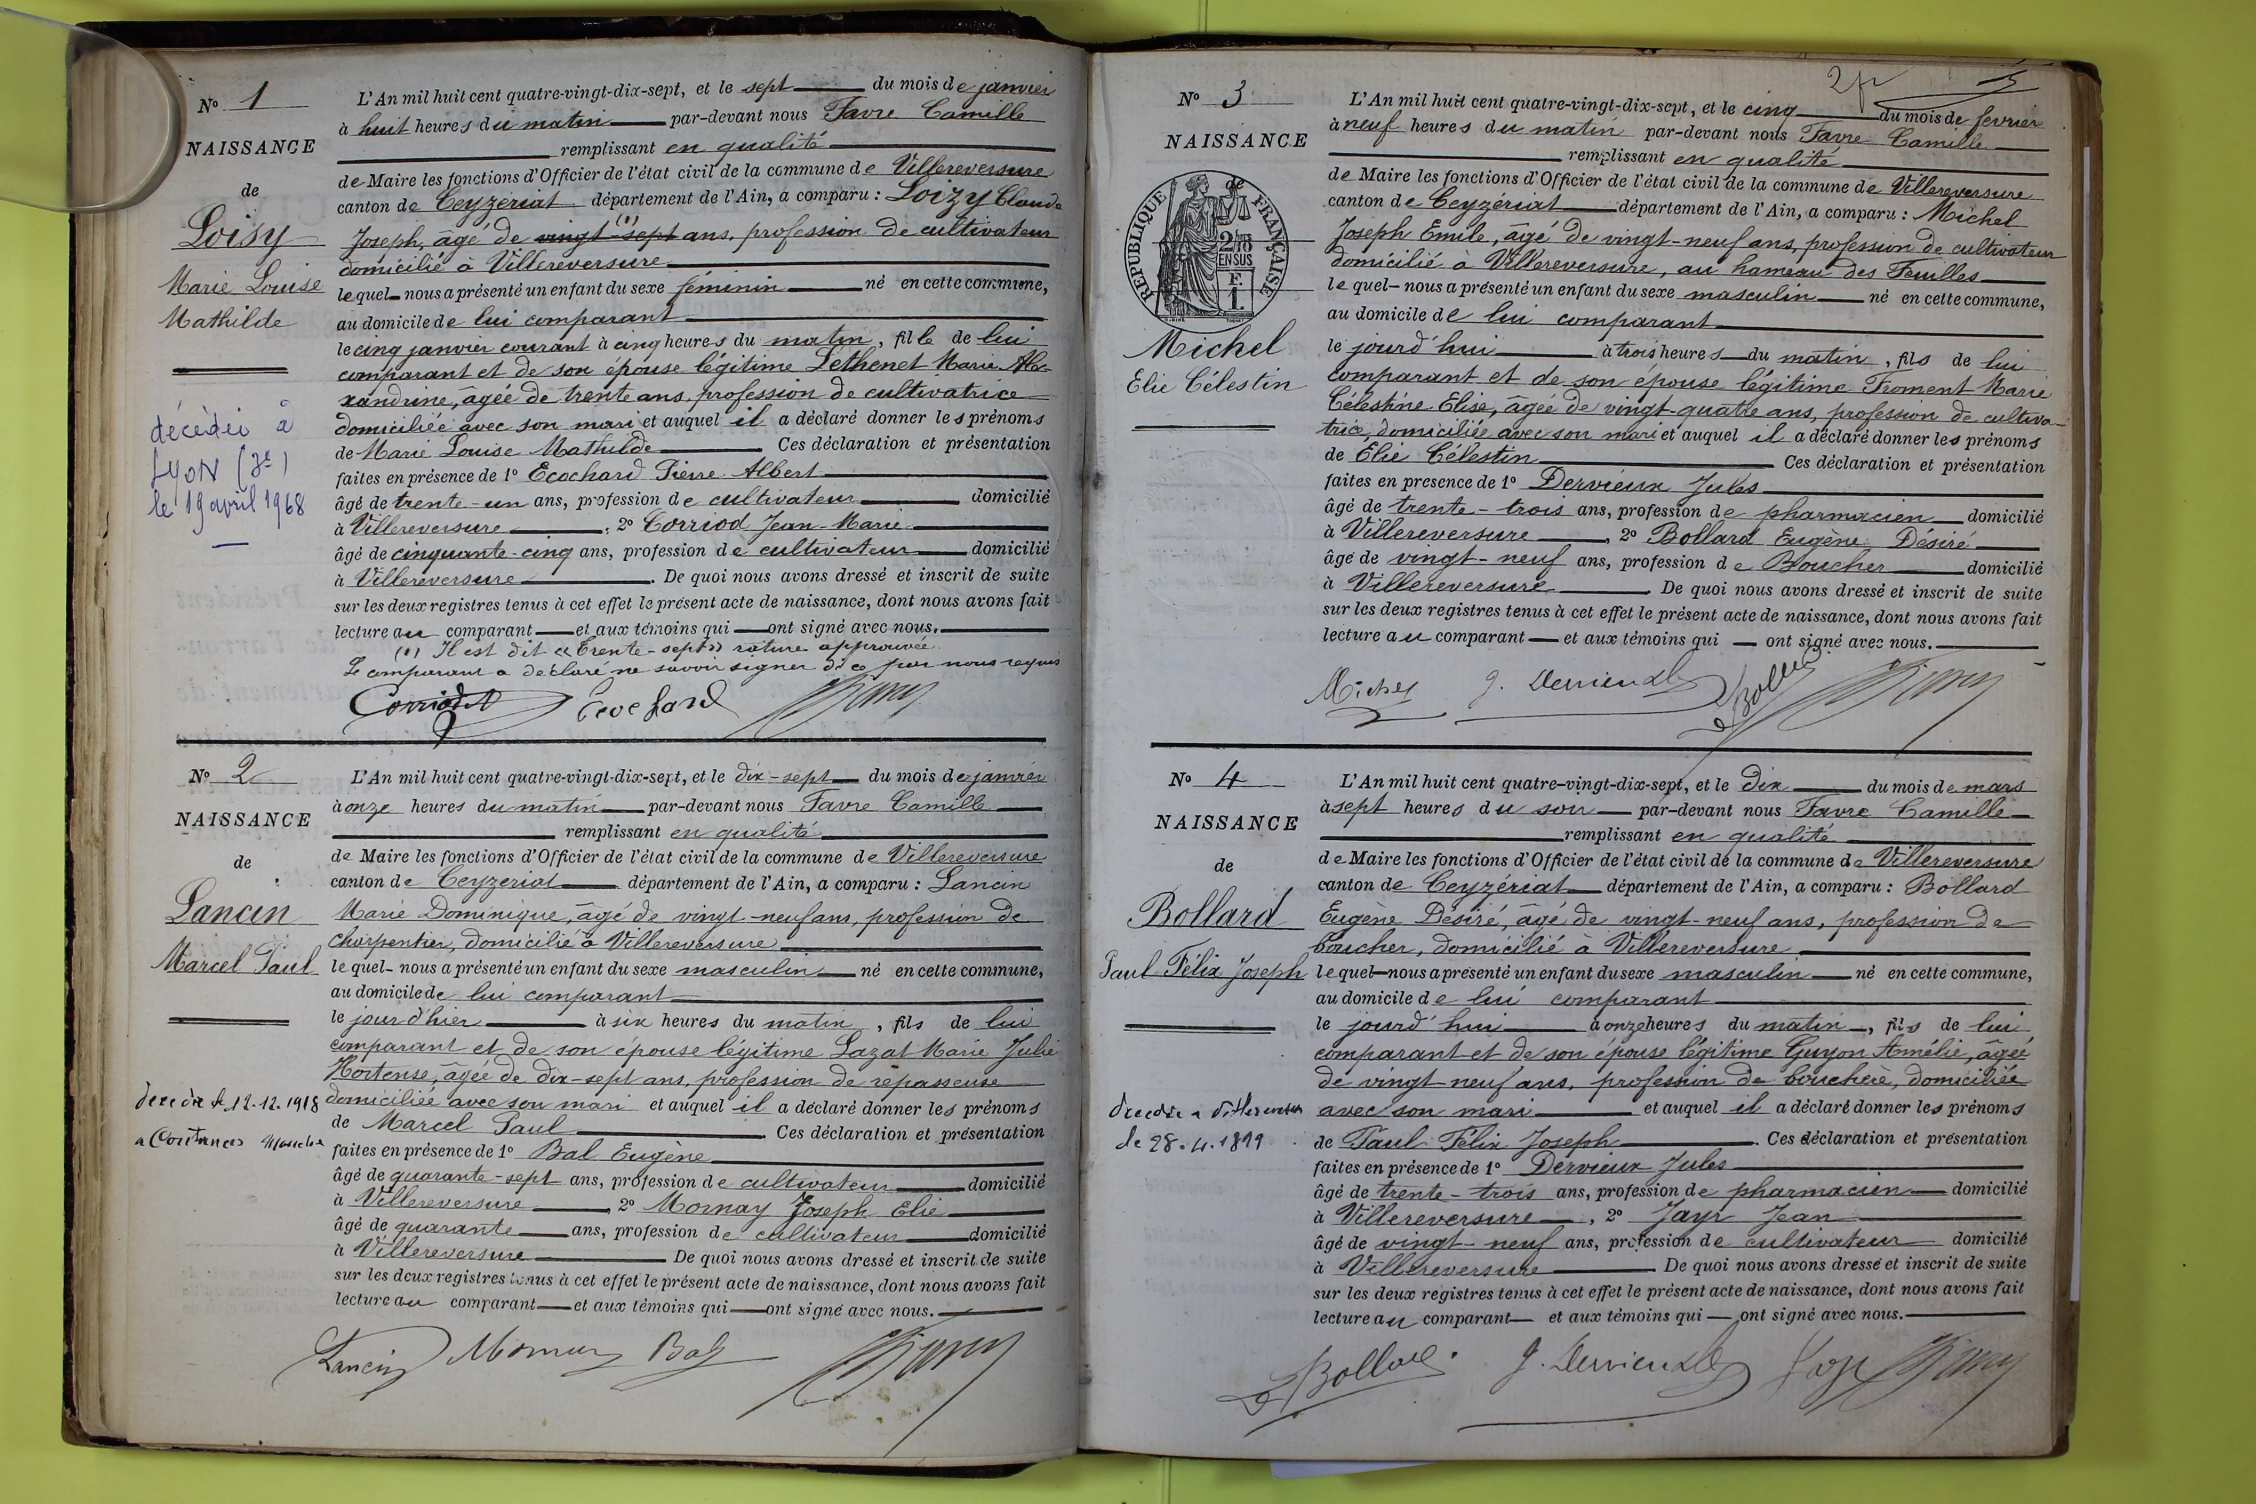 Nº 1
NAISSANCE
de
Loisy
Marie Louise
Mathilde
décédée à
Lyon (3e)
le 19 avril 1968
L'An mil huit cent quatre-vingt-dix-sept, et le sept du mois de janvier
à huit heures du matin par-devant nous Favre Camille
remplissant en qualité
de Maire les fonctions d'Officier de l'état civil de la commune de Villereversure
canton de Ceyzériat département de l'Ain, a comparu : Loizy Claude
Joseph, âgé de vingt-sept (1) ans, profession de cultivateur
domicilié à Villereversure
lequel nous a présenté un enfant du sexe féminin né en cette commune,
au domicile de lui comparant
le cinq janvier courant à cinq heures du matin, fille de lui
comparant et de son épouse légitime Léthenet Marie Ale-
xandrine, âgée de trente ans, profession de cultivatrice
domiciliée avec son mari et auquel il a déclaré donner les prénoms
de Marie Louise Mathilde Ces déclaration et présentation
faites en présence de 1º Ecochard Pierre Albert
âgé de trente-un ans, profession de cultivateur domicilié
à Villereversure, 2º Corriod Jean-Marie
âgé de cinquante-cinq ans, profession de cultivateur domicilié
à Villereversure. De quoi nous avons dressé et inscrit de suite
sur les deux registres tenus à cet effet le présent acte de naissance, dont nous avons fait
lecture au comparant et aux témoins qui ont signé avec nous.
(1) Il est dit « trente-sept » rature approuvée.
Le comparant a déclaré ne savoir signer de ce par nous requis
Corriod Ecochard Favre
Nº 2
NAISSANCE
de
Lancin
Marcel Paul
décédé le 12.12.1918
a Coutances Manche
L'An mil huit cent quatre-vingt-dix-sept, et le dix-sept du mois de janvier
à onze heures du matin par-devant nous Favre Camille
remplissant en qualité
de Maire les fonctions d'Officier de l'état civil de la commune de Villereversure
canton de Ceyzeriat département de l'Ain, a comparu : Lancin
Marie Dominique, âgé de vingt-neuf ans, profession de
charpentier, domicilié à Villereversure
lequel nous a présenté un enfant du sexe masculin né en cette commune,
au domicile de lui comparant
le jour d'hier à six heures du matin, fils de lui
comparant et de son épouse légitime Lazat Marie Julie
Hortense, âgée de dix-sept ans, profession de repasseuse
domiciliée avec son mari et auquel il a déclaré donner les prénoms
de Marcel Paul Ces déclaration et présentation
faites en présence de 1º Bal Eugène
âgé de quarante-sept ans, profession de cultivateur domicilié
à Villereversure, 2º Mornay Joseph Elie
âgé de quarante ans, profession de cultivateur domicilié
à Villereversure De quoi nous avons dressé et inscrit de suite
sur les deux registres tenus à cet effet le présent acte de naissance, dont nous avons fait
lecture au comparant et aux témoins qui ont signé avec nous.
Lancin Mornay Bal Favre
Nº 3
NAISSANCE
de
RÉPUBLIQUE FRANÇAISE
2/10
EN SUS
F.
1.
Michel
Elie Célestin
L'An mil huit cent quatre-vingt-dix-sept, et le cinq du mois de fevrier
à neuf heures du matin par-devant nous Favre Camille
remplissant en qualité
de Maire les fonctions d'Officier de l'état civil de la commune de Villereversure
canton de Ceyzériat département de l'Ain, a comparu : Michel
Joseph Emile, âgé de vingt-neuf ans, profession de cultivateur
domicilié à Villereversure, au hameau des Feuilles
lequel nous a présenté un enfant du sexe masculin né en cette commune,
au domicile de lui comparant
le jourd'hui à trois heures du matin, fils de lui
comparant et de son épouse légitime Froment Marie
Célestine Elise, âgée de vingt-quatre ans, profession de cultiva-
trice, domiciliée avec son mari et auquel il a déclaré donner les prénoms
de Elie Célestin Ces déclaration et présentation
faites en presence de 1º Dervieux Jules
âgé de trente-trois ans, profession de pharmacien domicilié
à Villereversure, 2º Bollard Eugène Désiré
âgé de vingt-neuf ans, profession de Boucher domicilié
à Villereversure. De quoi nous avons dressé et inscrit de suite
sur les deux registres tenus à cet effet le présent acte de naissance, dont nous avons fait
lecture au comparant et aux témoins qui ont signé avec nous.
Michel J. Dervieux Bollard Favre
Nº 4
NAISSANCE
de
Bollard
Paul Félix Joseph
décédé a Villereversure
le 28.4.1899
L'An mil huit cent quatre-vingt-dix-sept, et le dix du mois de mars
à sept heures du soir par-devant nous Favre Camille
remplissant en qualité
de Maire les fonctions d'Officier de l'état civil de la commune de Villereversure
canton de Ceyzériat département de l'Ain, a comparu : Bollard
Eugène Désiré, âgé de vingt-neuf ans, profession de
boucher, domicilié à Villereversure
lequel nous a présenté un enfant du sexe masculin né en cette commune,
au domicile de lui comparant
le jourd'hui à onze heures du matin, fils de lui
comparant et de son épouse légitime Guyon Amélie, âgée
de vingt-neuf ans, profession de bouchère, domiciliée
avec son mari et auquel il a déclaré donner les prénoms
de Paul Félix Joseph. Ces déclaration et présentation
faites en présence de 1º Dervieux Jules
âgé de trente-trois ans, profession de pharmacien domicilié
à Villereversure, 2º Jayr Jean
âgé de vingt-neuf ans, profession de cultivateur domicilié
à Villereversure De quoi nous avons dressé et inscrit de suite
sur les deux registres tenus à cet effet le présent acte de naissance, dont nous avons fait
lecture au comparant et aux témoins qui ont signé avec nous.
Bollard J. Dervieux Jayr Favre